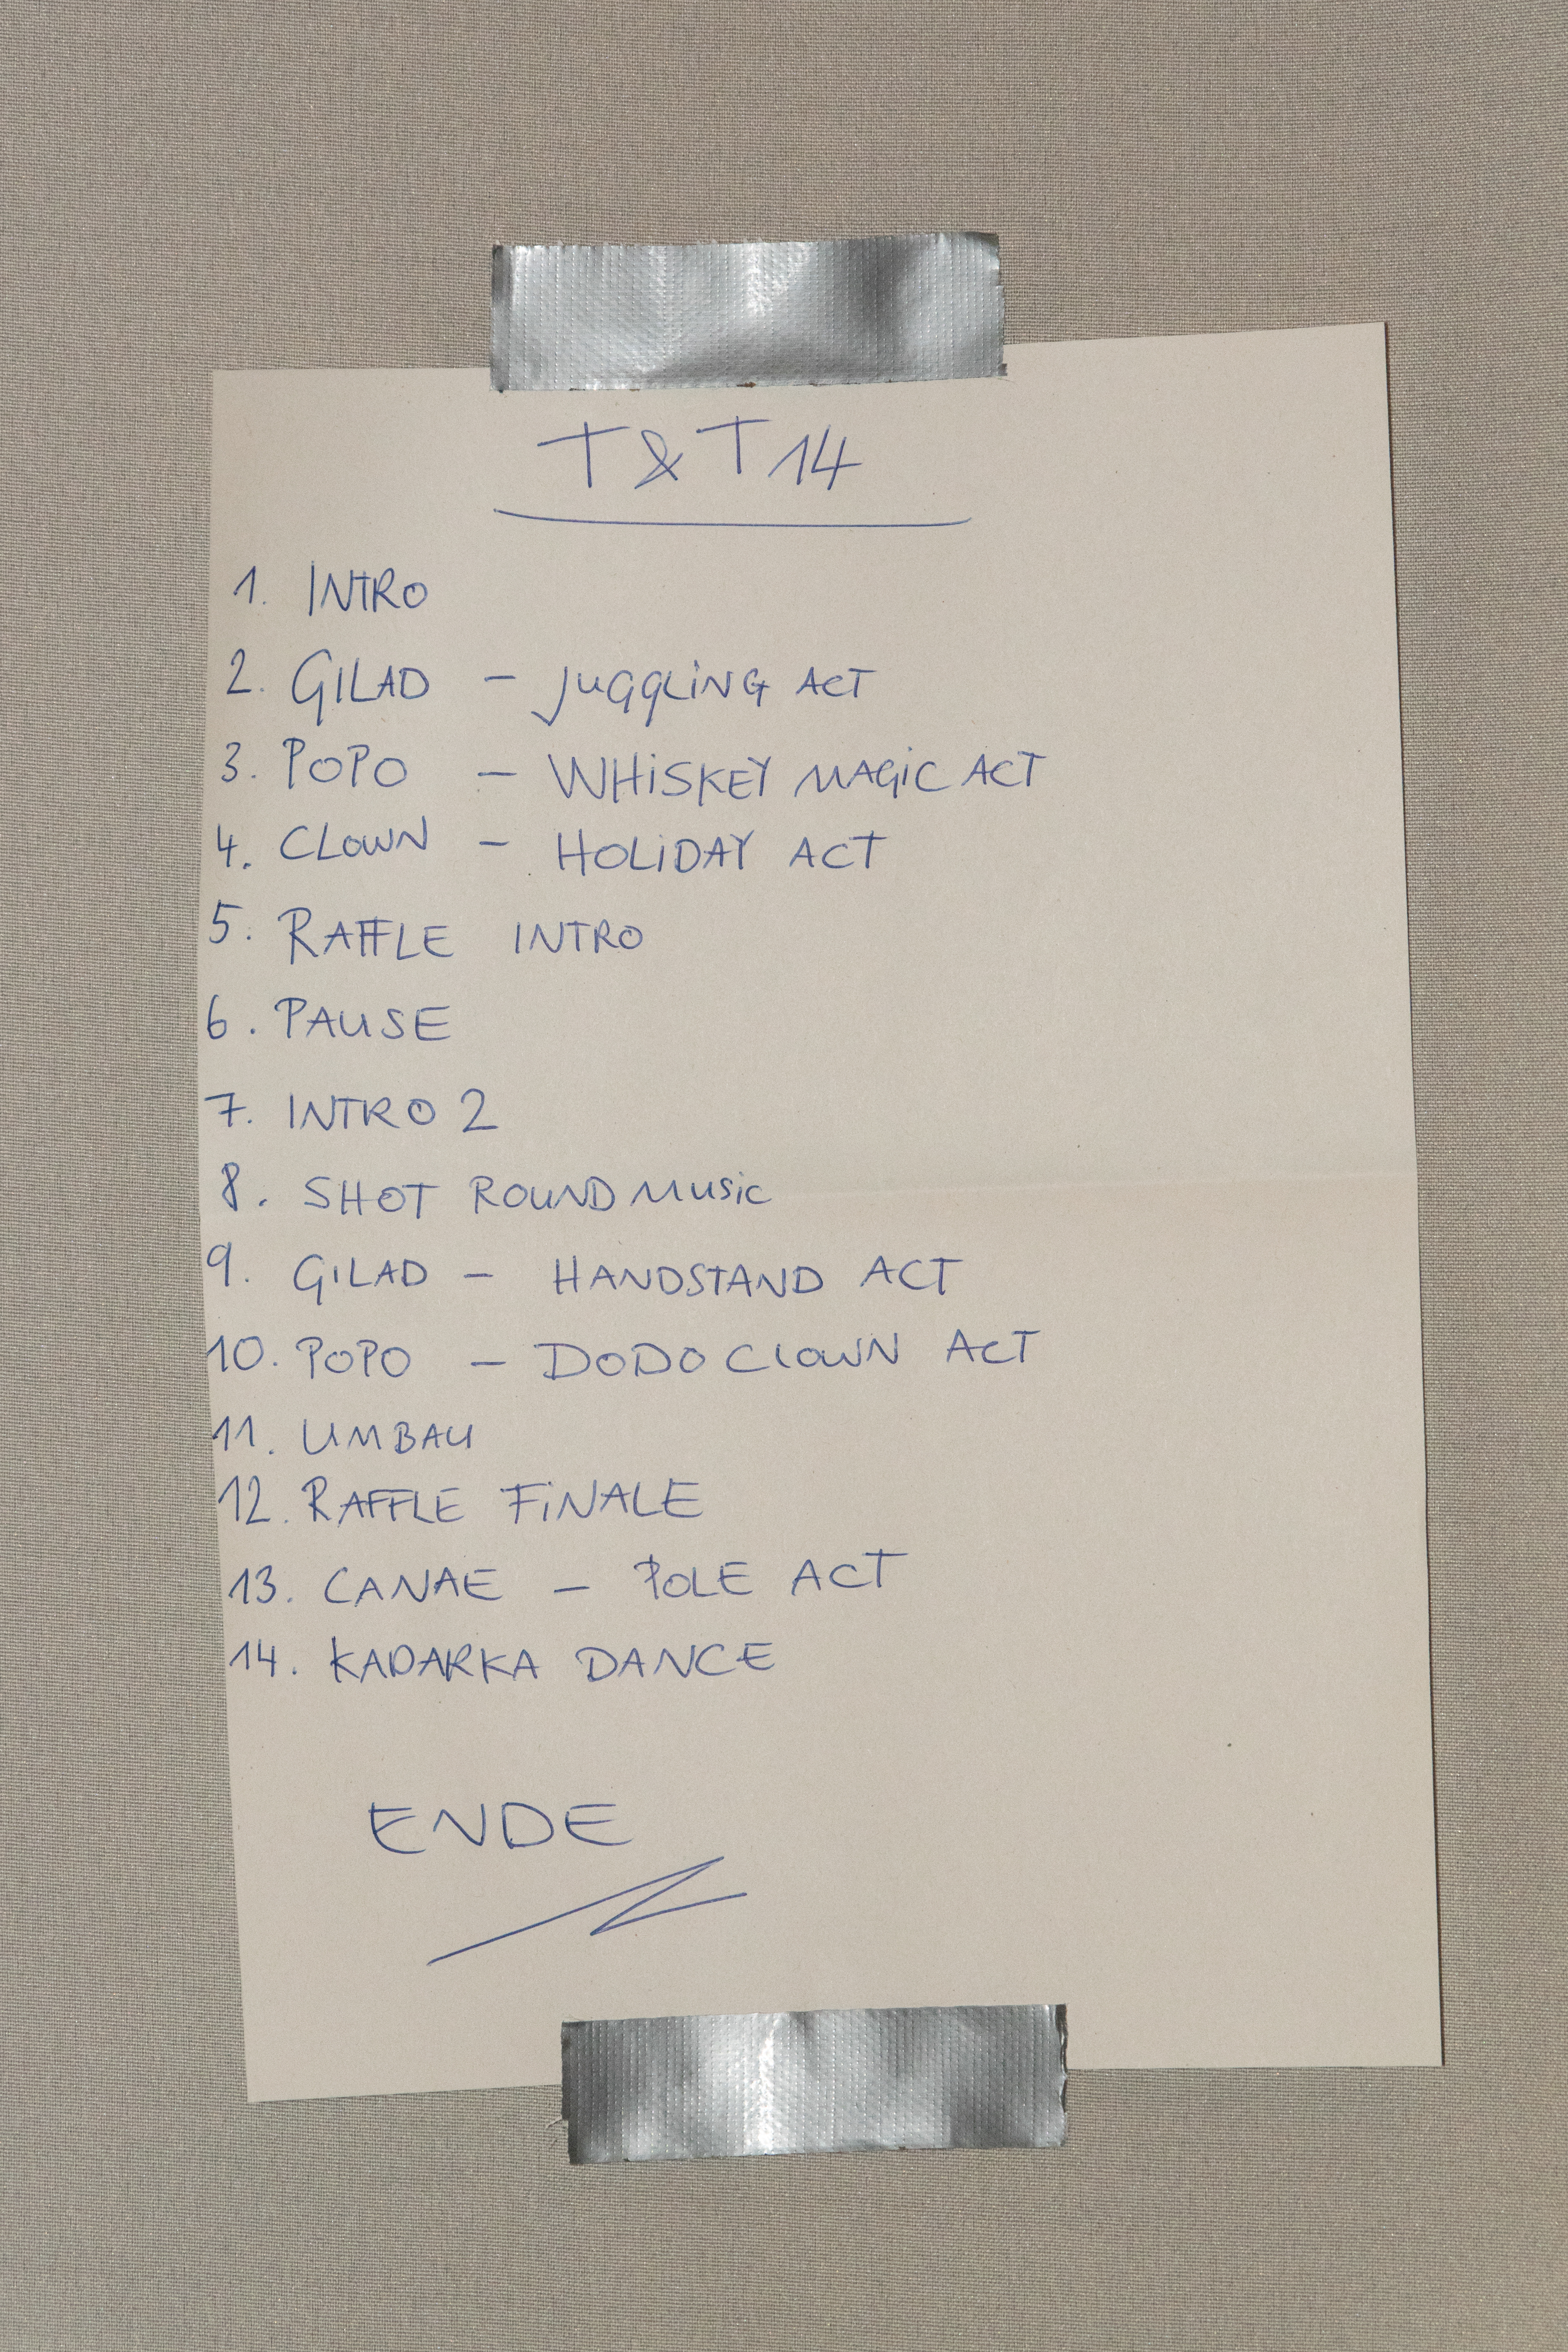 T & T 14
1. INTRO
2. GILAD – JUGGLING ACT
3. POPO – WHISKEY MAGIC ACT
4. CLOWN – HOLIDAY ACT
5. RAFFLE INTRO
6. PAUSE
7. INTRO 2
8. SHOT ROUND MUSIC
9. GILAD – HANDSTAND ACT
10. POPO – DODO CLOWN ACT
11. UMBAU
12. RAFFLE FINALE
13. CANAE – POLE ACT
14. KADARKA DANCE
ENDE